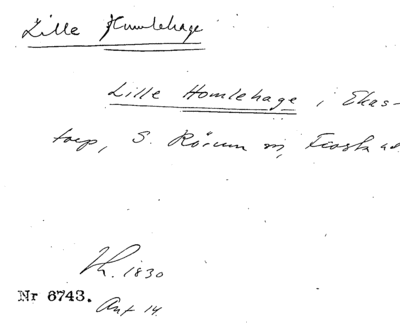 Lille Humlehage
Lille Homlehage, Ekas-
torp, S. Rörum sn, Frosta hd.
Th. 1830
Nr 6743.
Ant 14